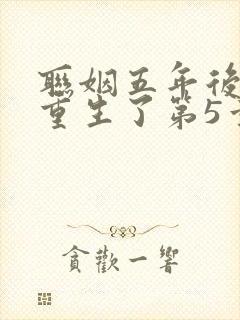 聯姻五年後
重生了第5章
貪歡一響